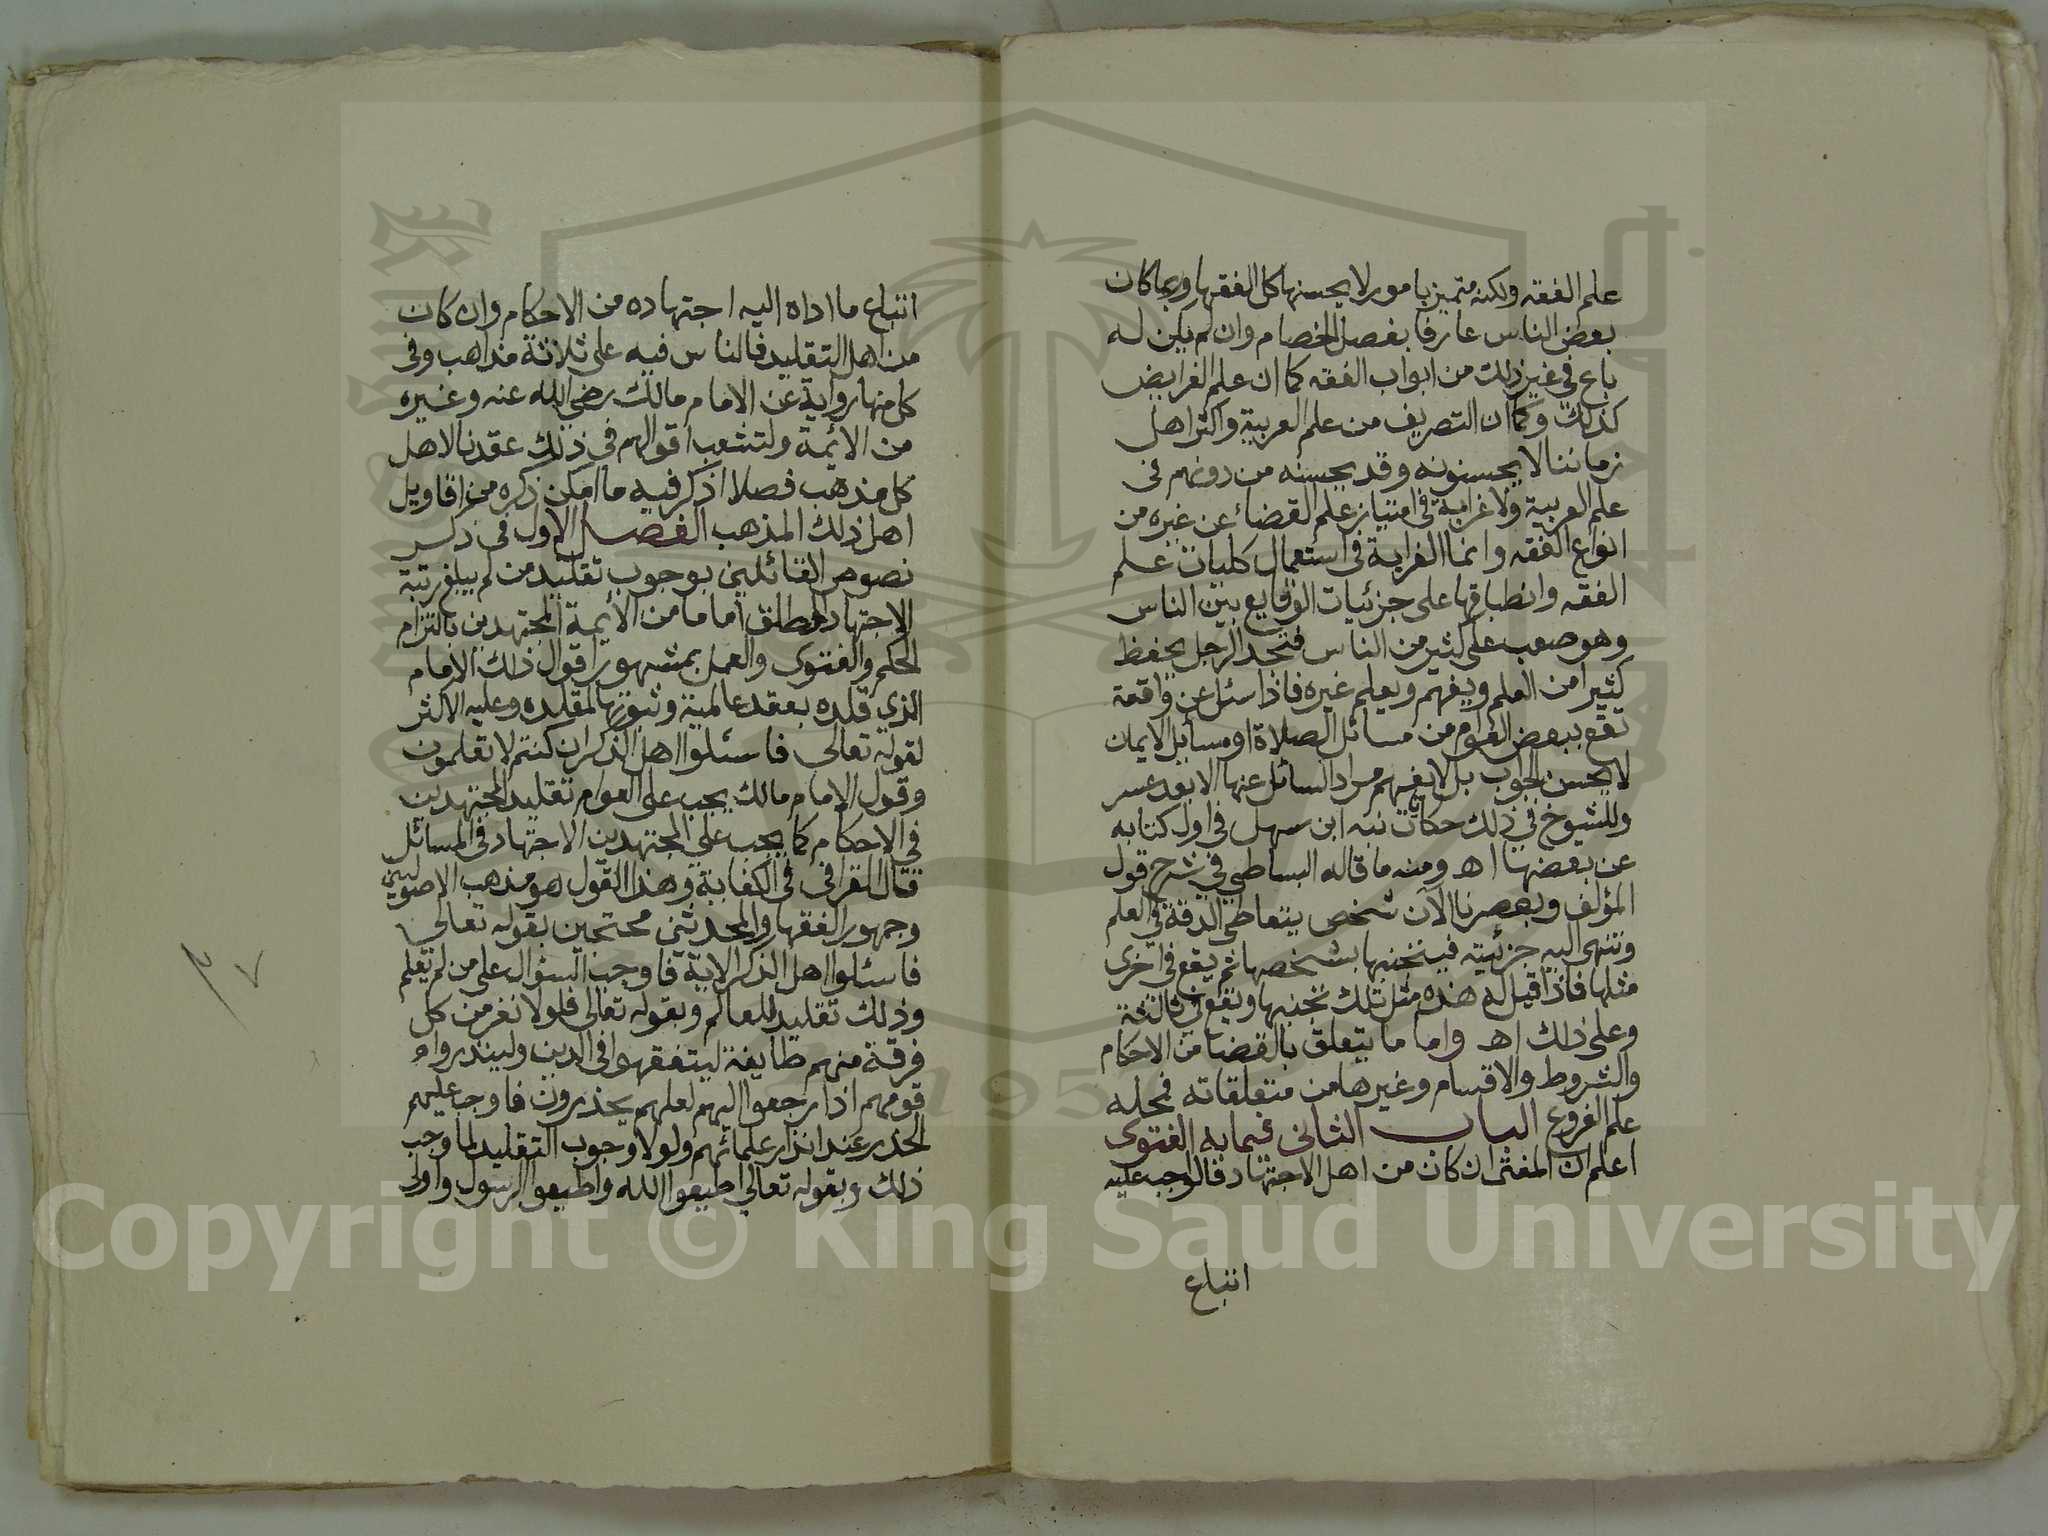 علم الفقه ولكنه متميز بامور لا يحسنها كل الفقها وربما كان
بعض الناس عارفا بفصل الخصام وان لم يكن له
باع في غير ذلك من ابواب الفقه كما ان علم الفرايض
كذلك وكما ان التصريف من علم العربية واكثر اهل
زماننا لا يحسنونه وقد يحسنه من دونهم في
علم العربية ولا غرابة في امتياز علم القضاء عن غيره من
انواع الفقه وانما الغرابة في استعمال كليات علم
الفقه وانطباقها على جزئيات الوقايع بين الناس
وهو صعب على كثير من الناس فتجد الرجل يحفظ
كثيرا من العلم ويفهم ويعلم غيره فاذا سئل عن واقعة
تقع ببعض العوام من مسائل الصلاة او مسايل الايمان
لا يحسن الجواب بل لا يفهم مراد السائل عنها الا بعد عسر
وللشيوخ في ذلك حكايات نبه ابن سهل في اول كتابه
عن بعضها اه ومنه ما قاله البساطي في شرح قول
المؤلف وبعصرنا الآن شخص يتعاطى الدقة في العلم
وتنهى اليه جزئيته فيتجنبها بشخصها ثم يقع في اخرى
مثلها فاذا قيل له هذه مثل تلك تجنبها ويقع في ثالثة
وعلى ذلك اه واما ما يتعلق بالقضا من الاحكام
والشروط والاقسام وغيرها من متعلقاته فمحله
علم الفروع الباب الثانى فيما به الفتوى
اعلم ان المفتى ان كان من اهل الاجتهاد فالواجب عليه
اتباع
اتباع ما اداه اليه اجتهاده من الاحكام وان كان
من اهل التقليد فالناس فيه على ثلاثة مذاهب وفي
كل منها رواية عن الامام مالك رضي الله عنه وغيره
من الأيمة ولتشعب اقوالهم في ذلك عقدنا لاهل
كل مذهب فصلا اذكر فيه ما امكن ذكره من اقاويل
اهل ذلك المذهب الفصل الاول في ذكر
نصوص القائلين بوجوب تقليد من لم يبلغ رتبة
الاجتهاد المطلق اماما من الأيمة المجتهدين بالتزام
الحكم والفتوى والعمل بمشهور اقوال ذلك الامام
الذي قلده بعقد عالمية وثبوتها لمقلده وعليه الاكثر
لقوله تعالى فاسئلوا اهل الذكر ان كنتم لا تعلمون
وقول الامام مالك يجب على العوام تقليد المجتهدين
في الاحكام كما يجب على المجتهدين الاجتهاد في المسائل
قال القرافي في الكفاية وهذا القول هو مذهب الاصوليين
وجمهور الفقها والمحدثين محتجين بقوله تعالى
فاسئلوا اهل الذكر الاية فاوجب السؤال على من لم يعلم
وذلك تقليد للعالم وبقوله تعالى فلولا نفر من كل
فرقة منهم طايفة ليتفقهوا في الدين ولينذروا
قومهم اذا رجعوا اليهم لعلهم يحذرون فاوجب عليهم
الحذر عند انذار علمائهم ولولا وجوب التقليد لما وجب
ذلك وبقوله تعالى اطيعوا الله واطيعوا الرسول واولى
Copyright © King Saud University